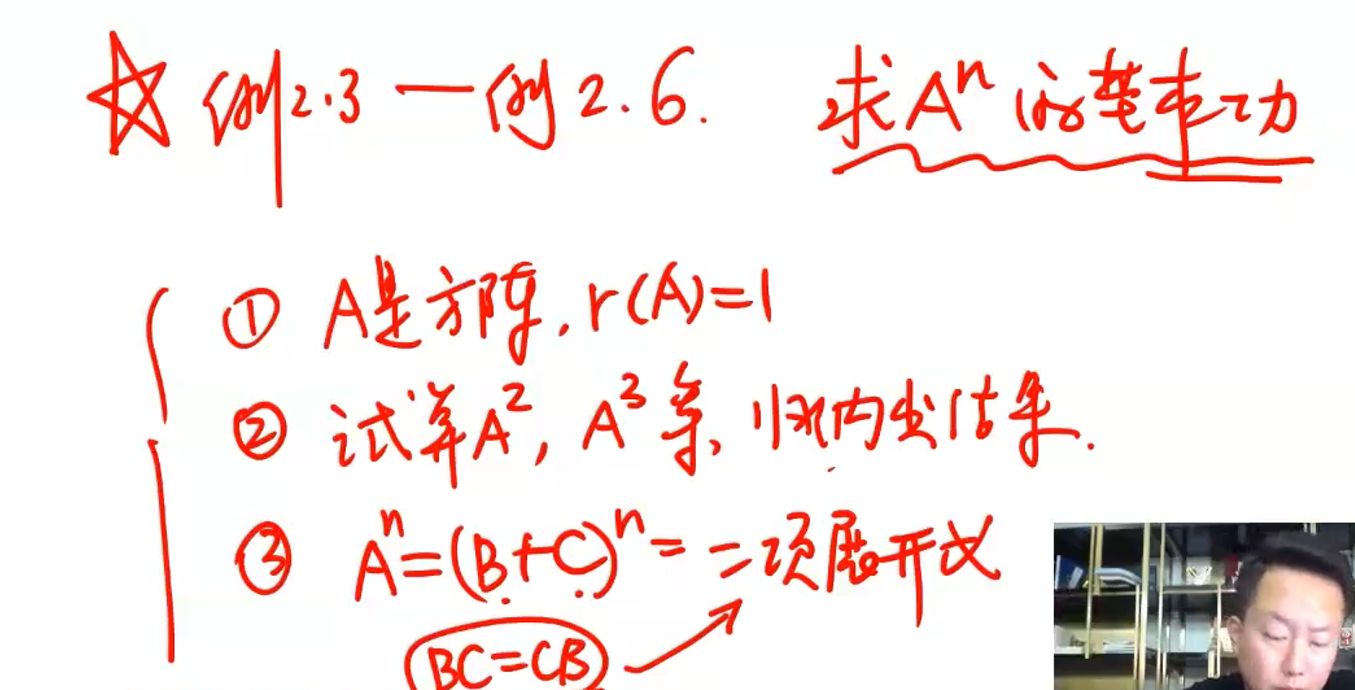 ☆ 例2.3 — 例2.6. 求Aⁿ的基本功
① A是方阵, r(A)=1
② 试算A², A³等, 归纳出结果.
③ Aⁿ=(B+C)ⁿ= 二项展开式
BC=CB